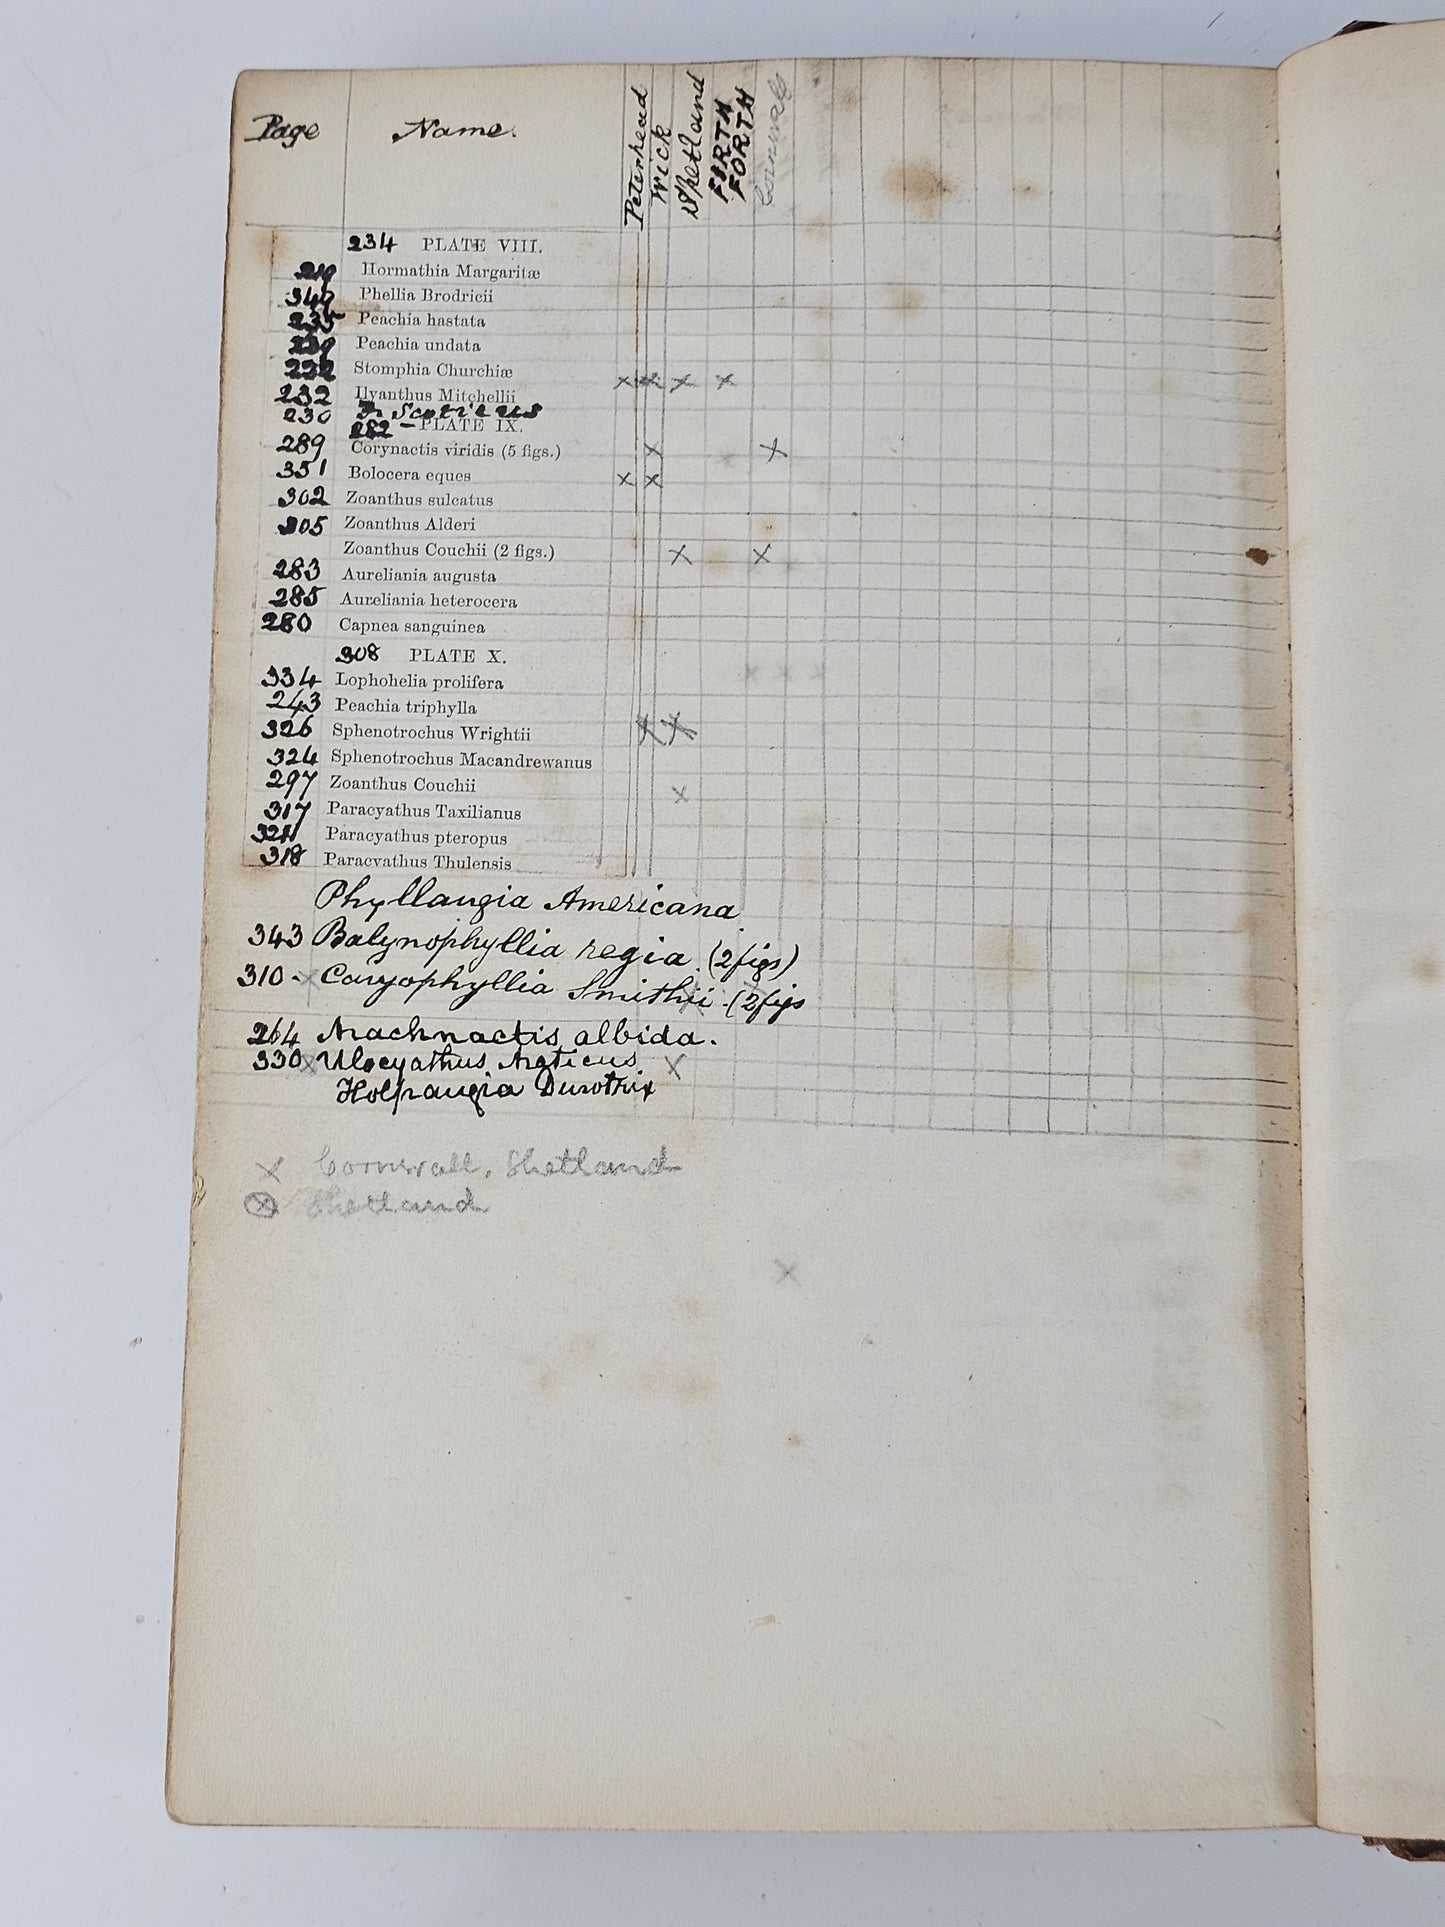 Page Name. Peterhead Wick Shetland FIRTH FORTH Cornwall
234 PLATE VIII.
219 Hormathia Margaritæ
349 Phellia Brodricii
235 Peachia hastata
239 Peachia undata
222 Stomphia Churchiæ x x x x
232 Ilyanthus Mitchellii
230 I. Scoticus
282 – PLATE IX.
289 Corynactis viridis (5 figs.) x x
351 Bolocera eques x x
302 Zoanthus sulcatus
305 Zoanthus Alderi
Zoanthus Couchii (2 figs.) x x
283 Aureliania augusta
285 Aureliania heterocera
280 Capnea sanguinea
308 PLATE X.
334 Lophohelia prolifera
243 Peachia triphylla
326 Sphenotrochus Wrightii x x
324 Sphenotrochus Macandrewanus
297 Zoanthus Couchii x
317 Paracyathus Taxilianus
Paracyathus pteropus
318 Paracyathus Thulensis
Phyllangia Americana
343 Balynophyllia regia (2 figs)
310 - x Caryophyllia Smithii. (2 figs
264 Arachnactis albida.
330 x Ulocyathus Arcticus x
x Cornwall, Shetland
x Shetland
x